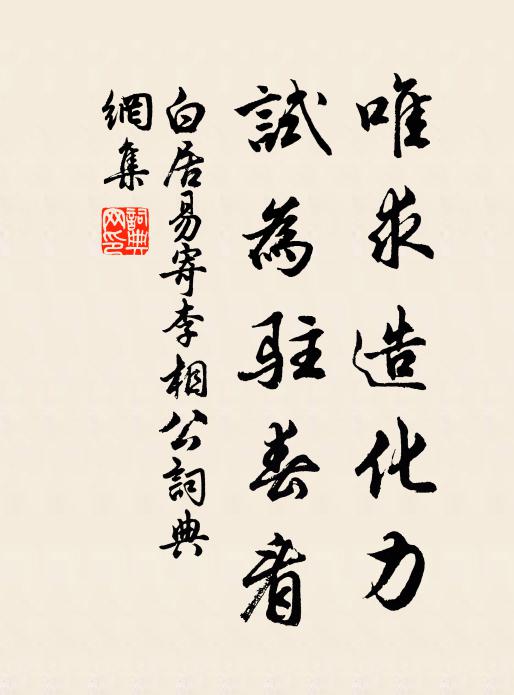 唯求造化力
試為駐春看
白居易寄李相公詞典
網集
詞典
网印